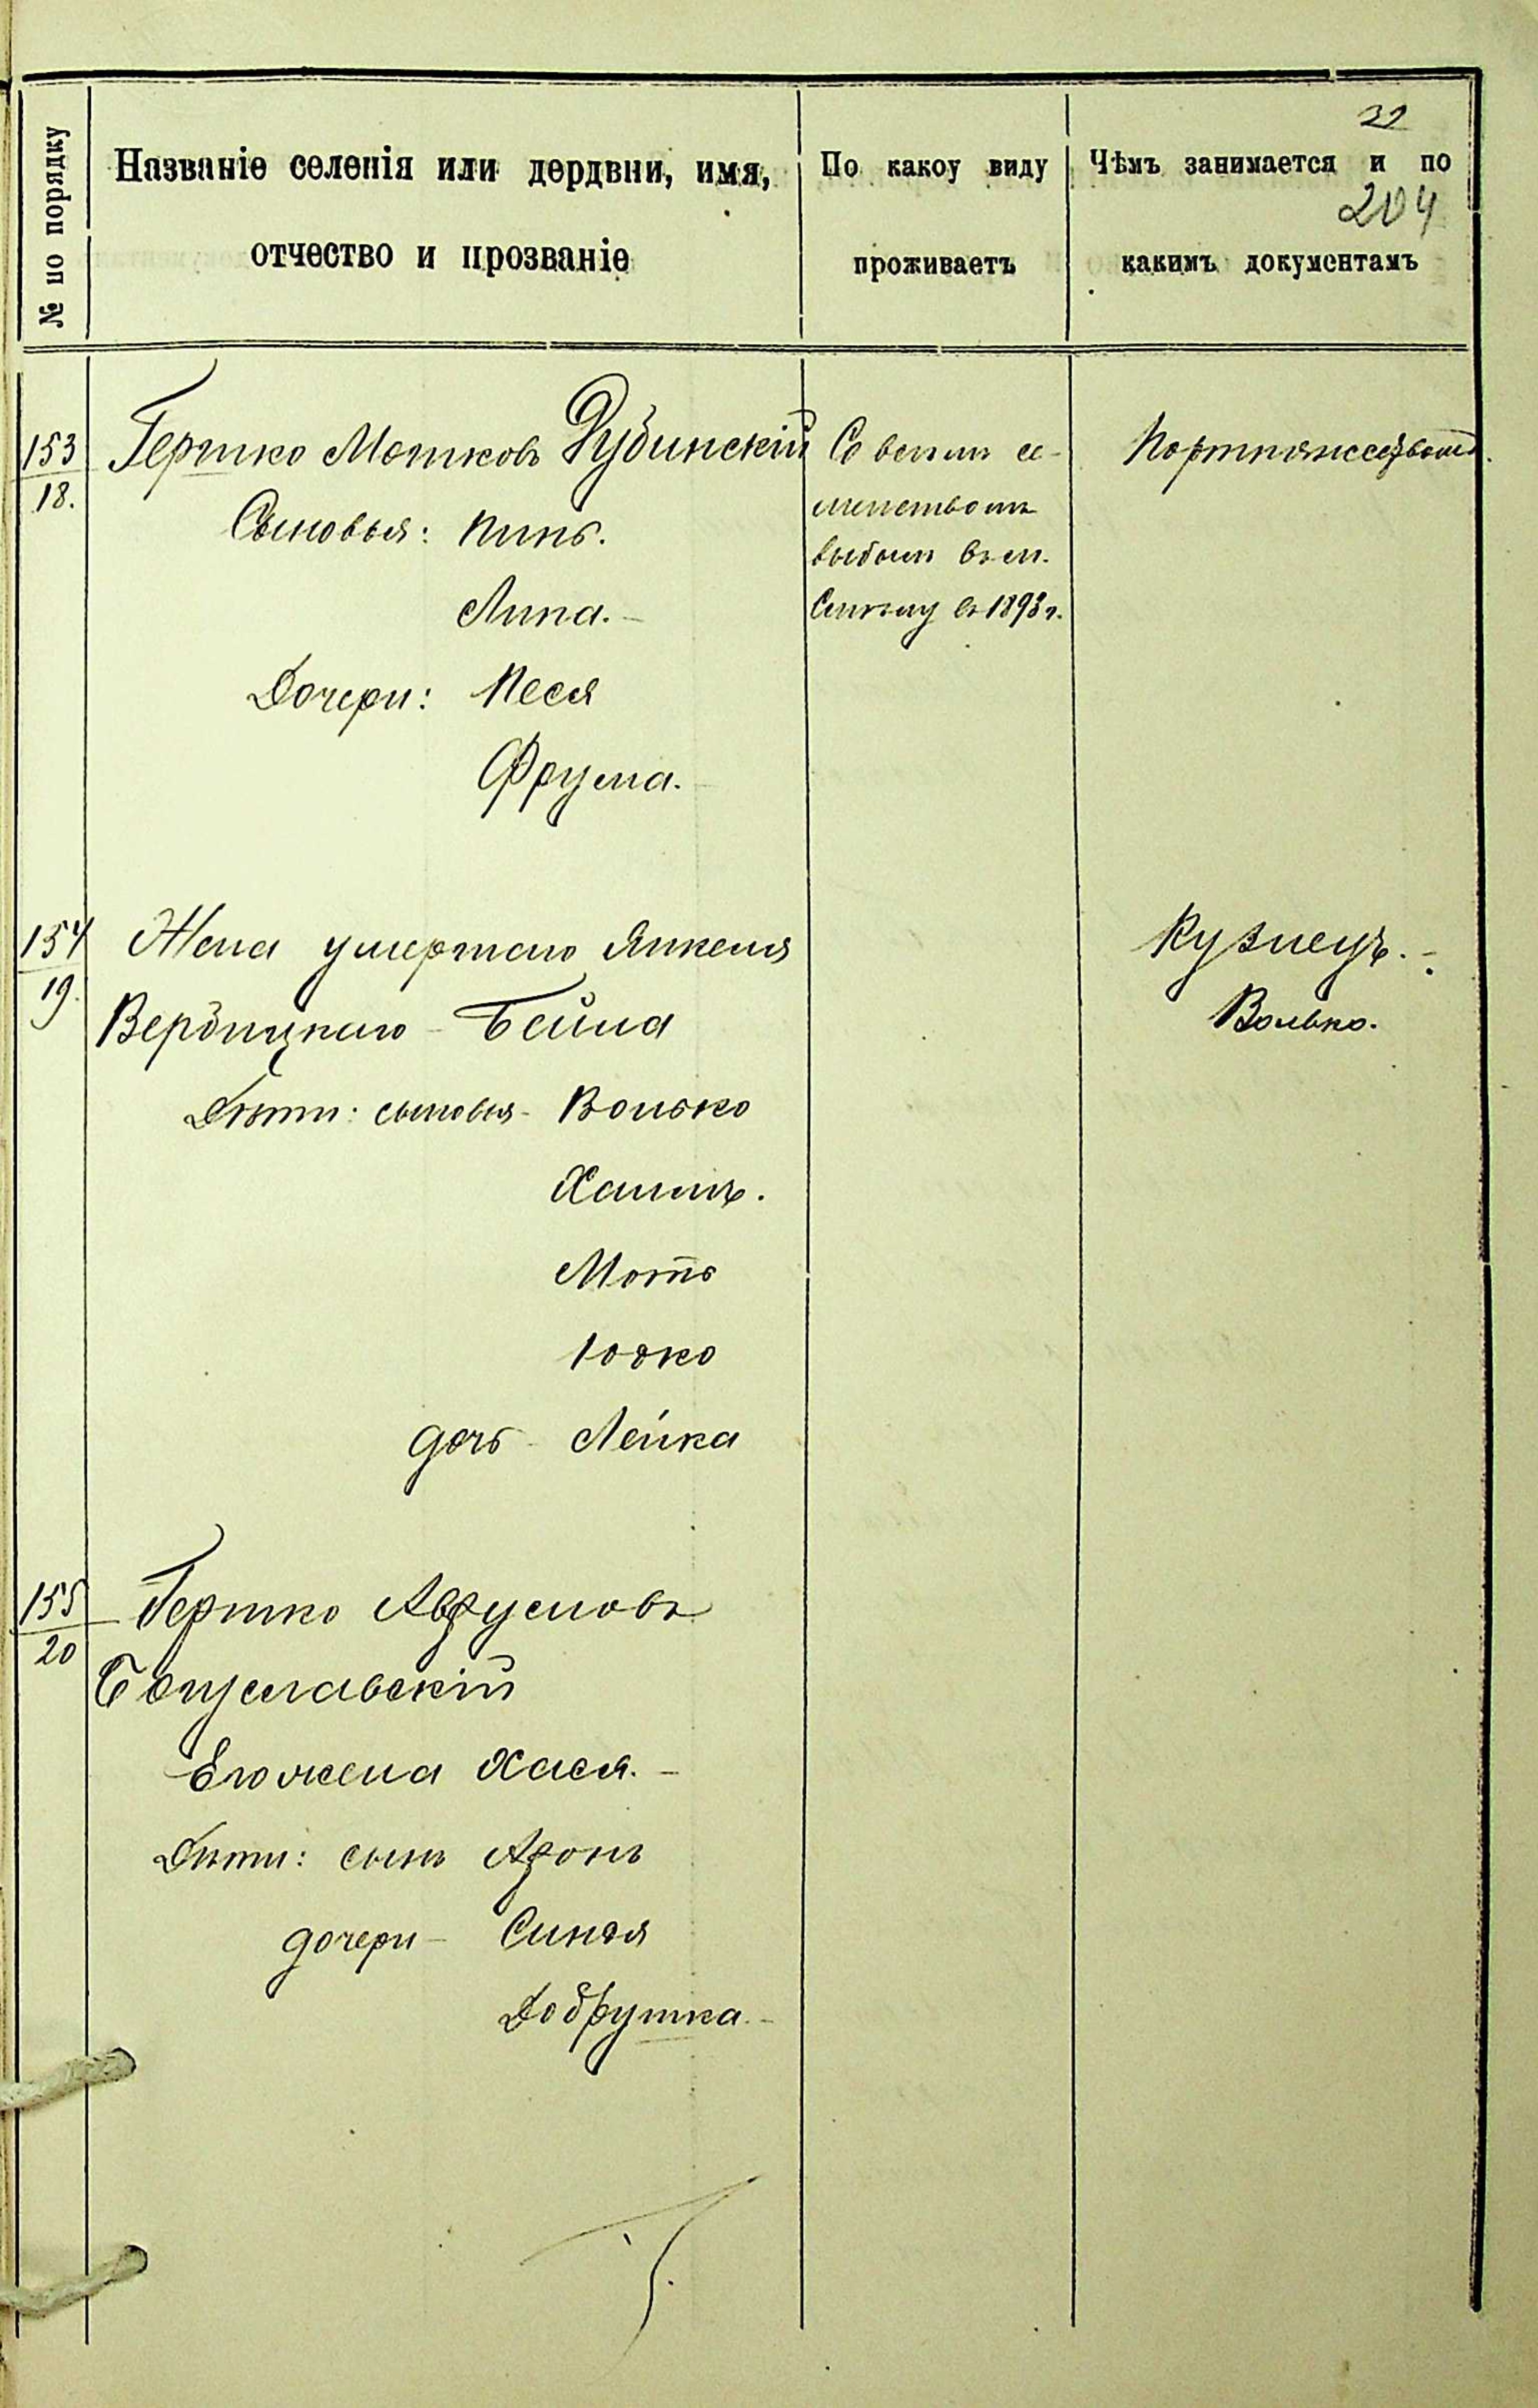 32
204
№ по порядку
Названіе селенія или дердвни, имя,
отчество и прозваніе
По какоу виду
проживаетъ
Чѣмъ занимается и по
какимъ документамъ
153
18.
Гершко Мошковъ Рубинскій
Сыновья: Пинь.
Липа.-
Дочери: Песя
Фрума.-
Со всѣмъ се-
мействомъ
выбылъ въ м.
Смѣлу въ 1893 г.
Портняжествомъ.
154
19.
Жена умершаго Янкеля
Вербицкаго - Бейла
Дѣти: сыновья - Волько
Хаимъ.
Моть
Іосько
дочь - Лейка
Кузнецъ.-
Волько.
155
20
Гершко Аврумовъ
Богуславскій
Его жена Хася.-
Дѣти: сынъ Аронъ
дочери - Синдя
Добрушка.-